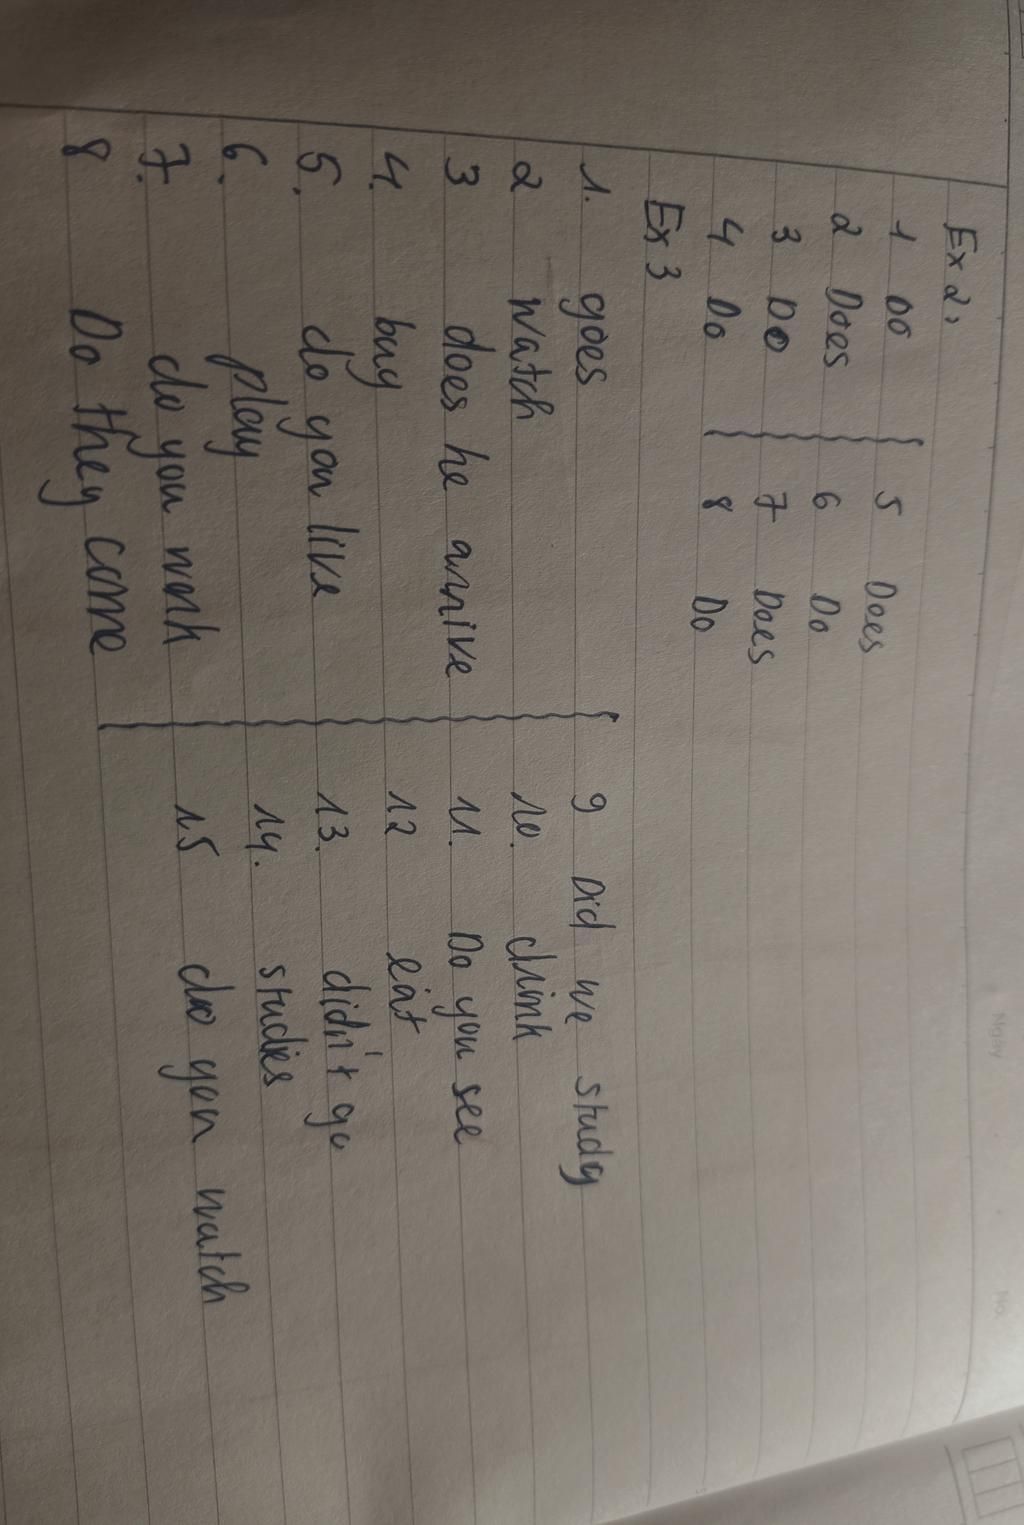 Ex 2,
1 Do 5 Does
2 Does 6 Do
3 Do 7 Does
4 Do 8 Do
Ex 3
1. goes 9 Did we study
2 watch 10. drink
3 does he arrive 11. Do you see
4. buy 12 eat
5. do you like 13. didn't go
6. play 14. studies
7. do you work 15 do you watch
8 Do they come
Ngày
No.